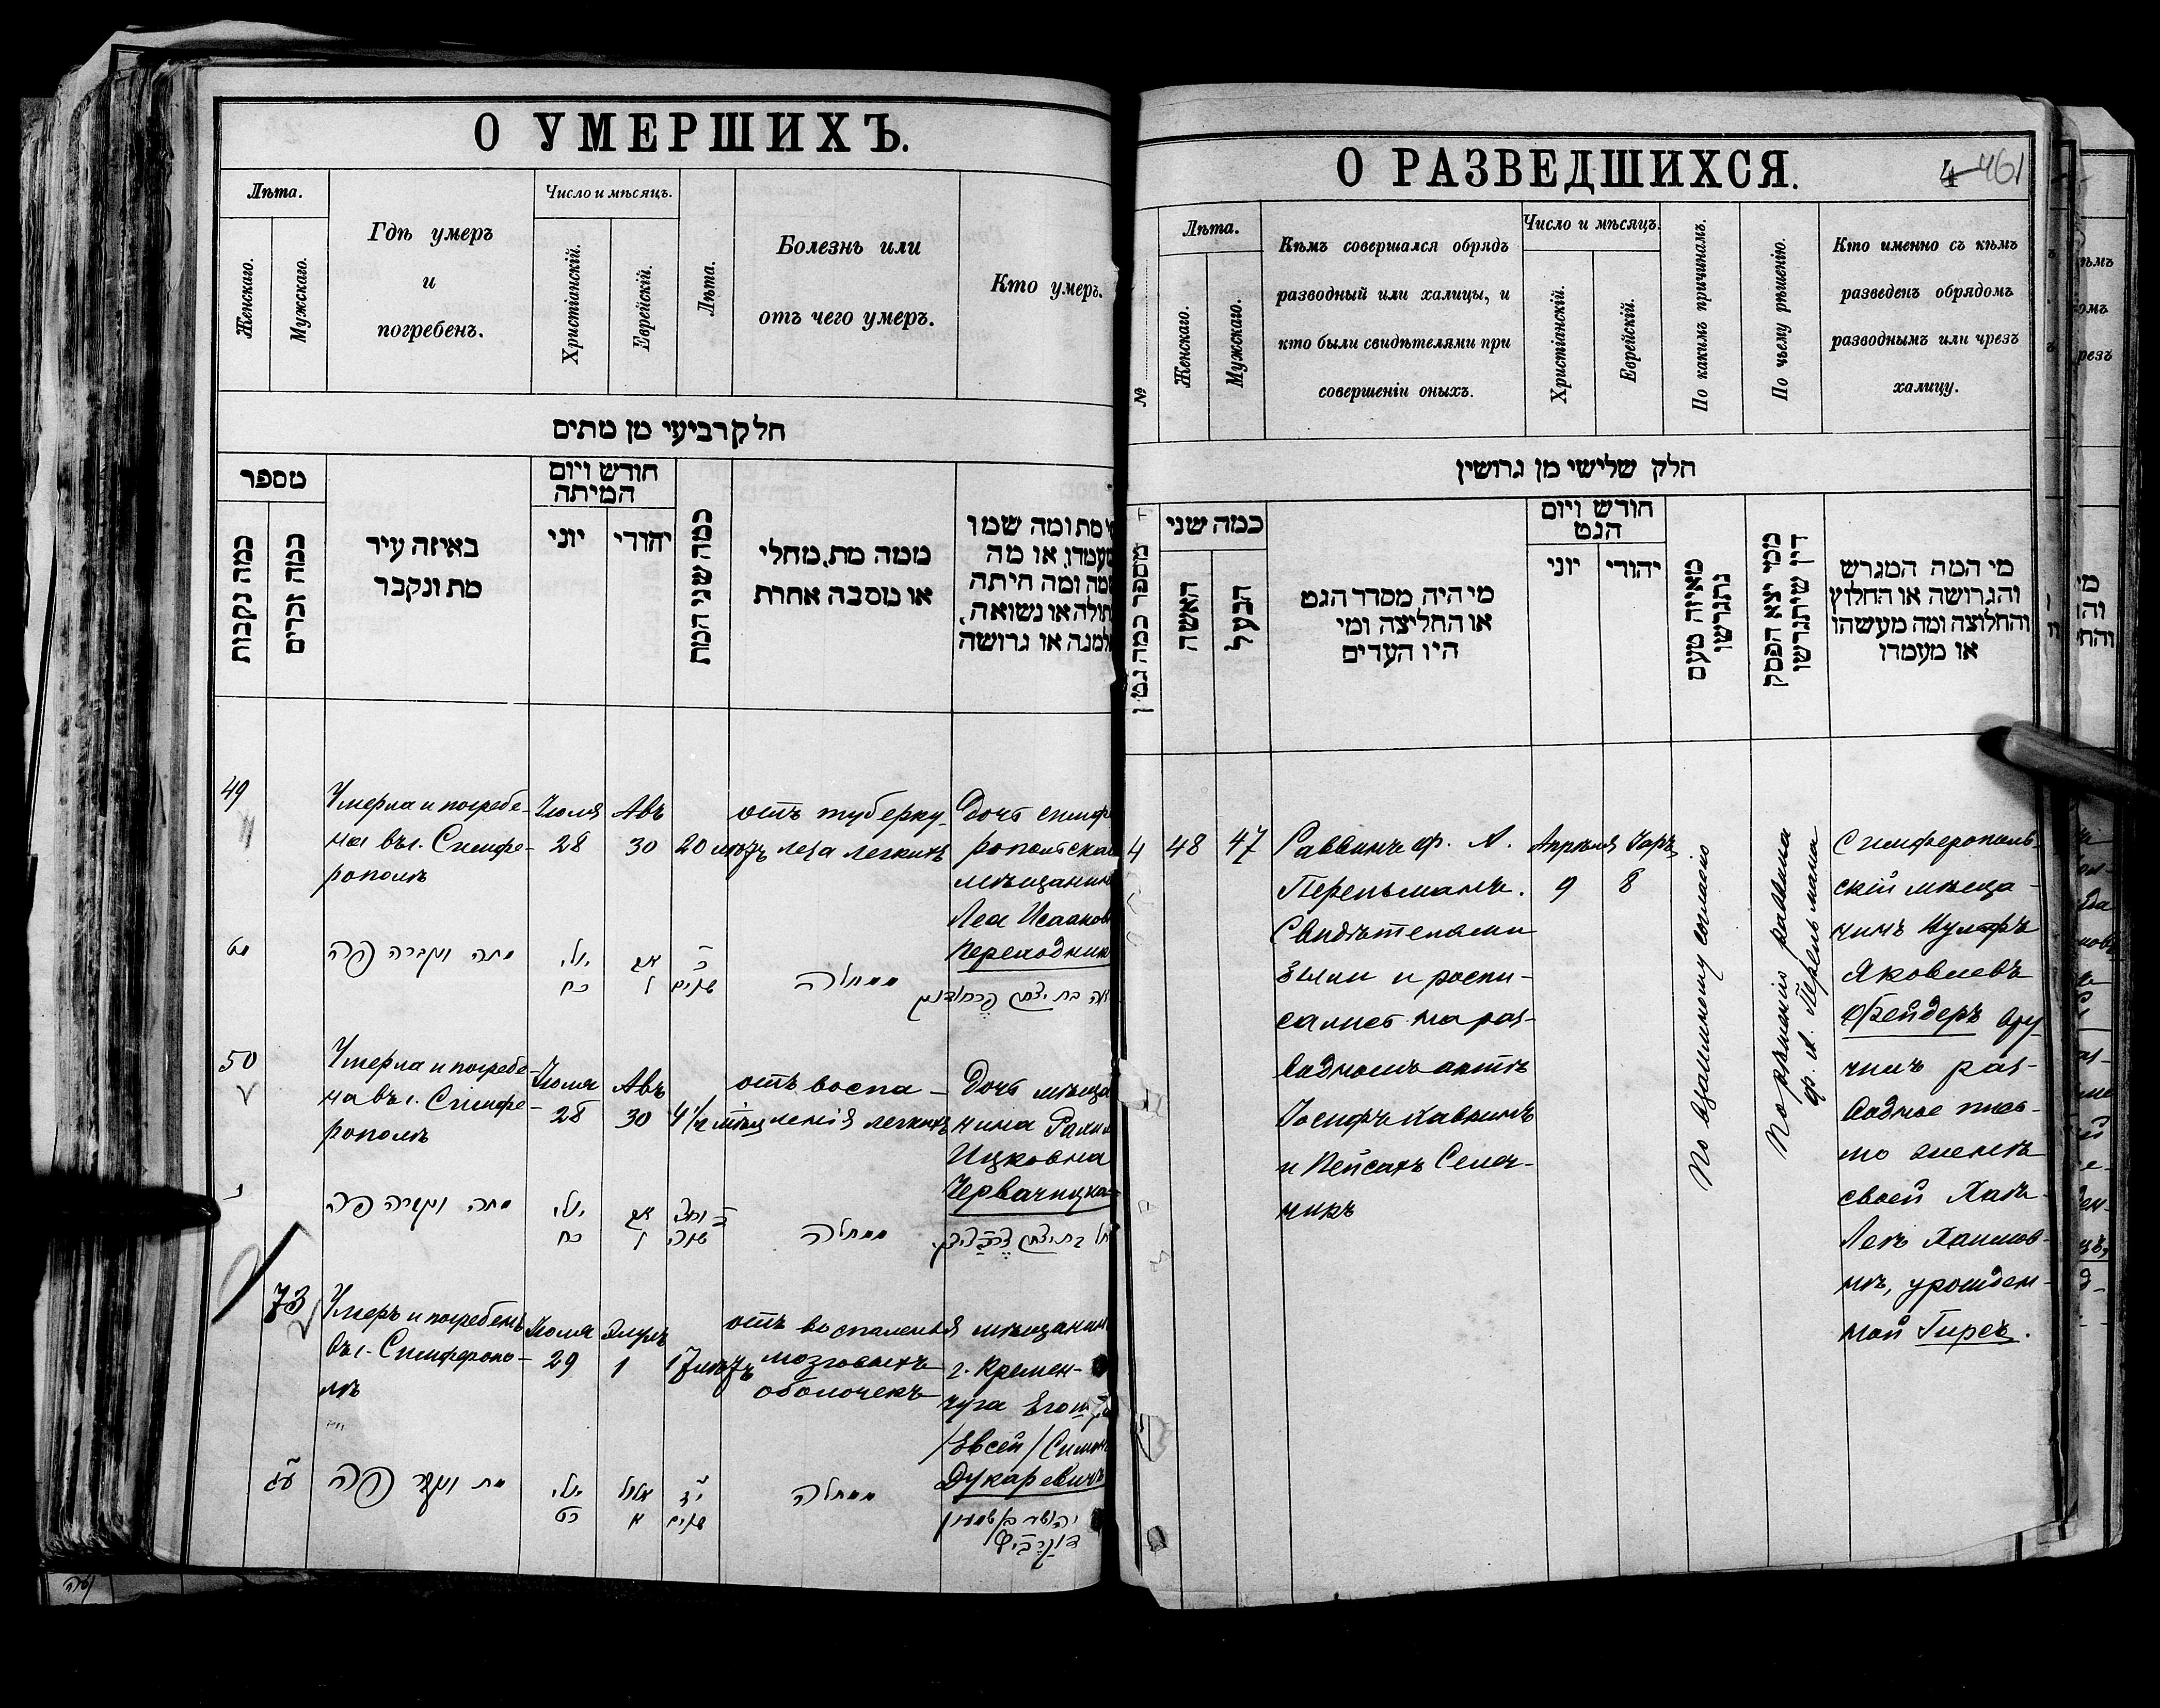 О УМЕРШИХЪ.
Лѣта.
Женскаго.
Мужскаго.
Гдѣ умеръ
и
погребенъ.
Число и мѣсяцъ.
Христіанскій.
Еврейскій.
Лѣта.
Болезнь или
отъ чего умеръ.
Кто умеръ.
חלק רביעי מן מתים
מספר
כמה נקבות
כמה זכרים
באיזה עיר
מת ונקבר
חודש ויום
המיתה
יוני
יהודי
כמה שני המת
ממה מת, מחלי
או מסבה אחרת
מת ומה שמו
מעמדו, או מה
שמה ומה חיתה
או נשואה,
או גרושה
49
Умерла и погребе-
на въ г. Симфе-
рополѣ
Іюля
28
Авъ
30
20 лѣтъ
отъ туберку-
леза легкихъ
Дочь симф
ропольская
мѣщанин
Леа Исааков
Переходник
מט
מתה ונקברה פה
יולי
כח
אב
ל
כ
שנים
ממחלה
לאה בת יצחק
50
Умерла и погребе-
на въ г. Симфе-
рополѣ
Іюля
28
Авъ
30
4½ мѣсяц
отъ воспа-
ленія легкихъ
Дочь мѣща
нина Рахил
Ицковна
Червачицка
נ
מתה ונקברה פה
יולי
כח
אב
ל
ממחלה
בת יצחק
73
Умеръ и погребенъ
въ г. Симферопо-
лѣ
Іюля
29
Элулъ
1
17 лѣтъ
отъ воспаленія
мозговыхъ
оболочекъ
мѣщанин
г. Кремен-
чуга
/Евсей/ Симон
Дукаревичъ
עג
מת ונקבר פה
יולי
כט
אלול
א
יז
שנים
ממחלה
יהושע בן שמעון
О РАЗВЕДШИХСЯ.
4 461
№
Лѣта.
Женскаго.
Мужскаго.
Кѣмъ совершался обрядъ
разводный или халицы, и
кто были свидѣтелями при
совершеніи оныхъ.
Число и мѣсяцъ.
Христіанскій.
Еврейскій.
По какимъ причинамъ.
По чьему рѣшенію.
Кто именно съ кѣмъ
разведенъ обрядомъ
разводнымъ или чрезъ
халицу.
חלק שלישי מן גרושין
מספר כמה גטין
כמה שני
האשה
הבעל
מי היה מסדר הגט
או החליצה ומי
היו העדים
חודש ויום
הגט
יוני
יהודי
מאיזה טעם
נתגרשו
ממי יצא הפסק
דין שיתגרשו
מי המה המגרש
והגרושה או החלוץ
והחלוצה ומה מעשהו
או מעמדו
4
48
47
Раввинъ ф. А.
Перельманъ.
Свидѣтелями
были и роспи-
сались на раз-
водномъ актѣ
Іосифъ Кавынъ
и Пейсахъ Селеч-
никъ
Апрѣля
9
Іаръ
8
По взаимному согласію
По рѣшенію раввина
ф. А. Перельмана
Симферополь-
скій мѣща-
нинъ Вульфъ
Яковлевъ
Бейдеръ вру-
чилъ раз-
водное пись-
мо женѣ
своей Хаѣ-
Леѣ Хаимов-
нѣ, урожден-
ной Гирсъ.